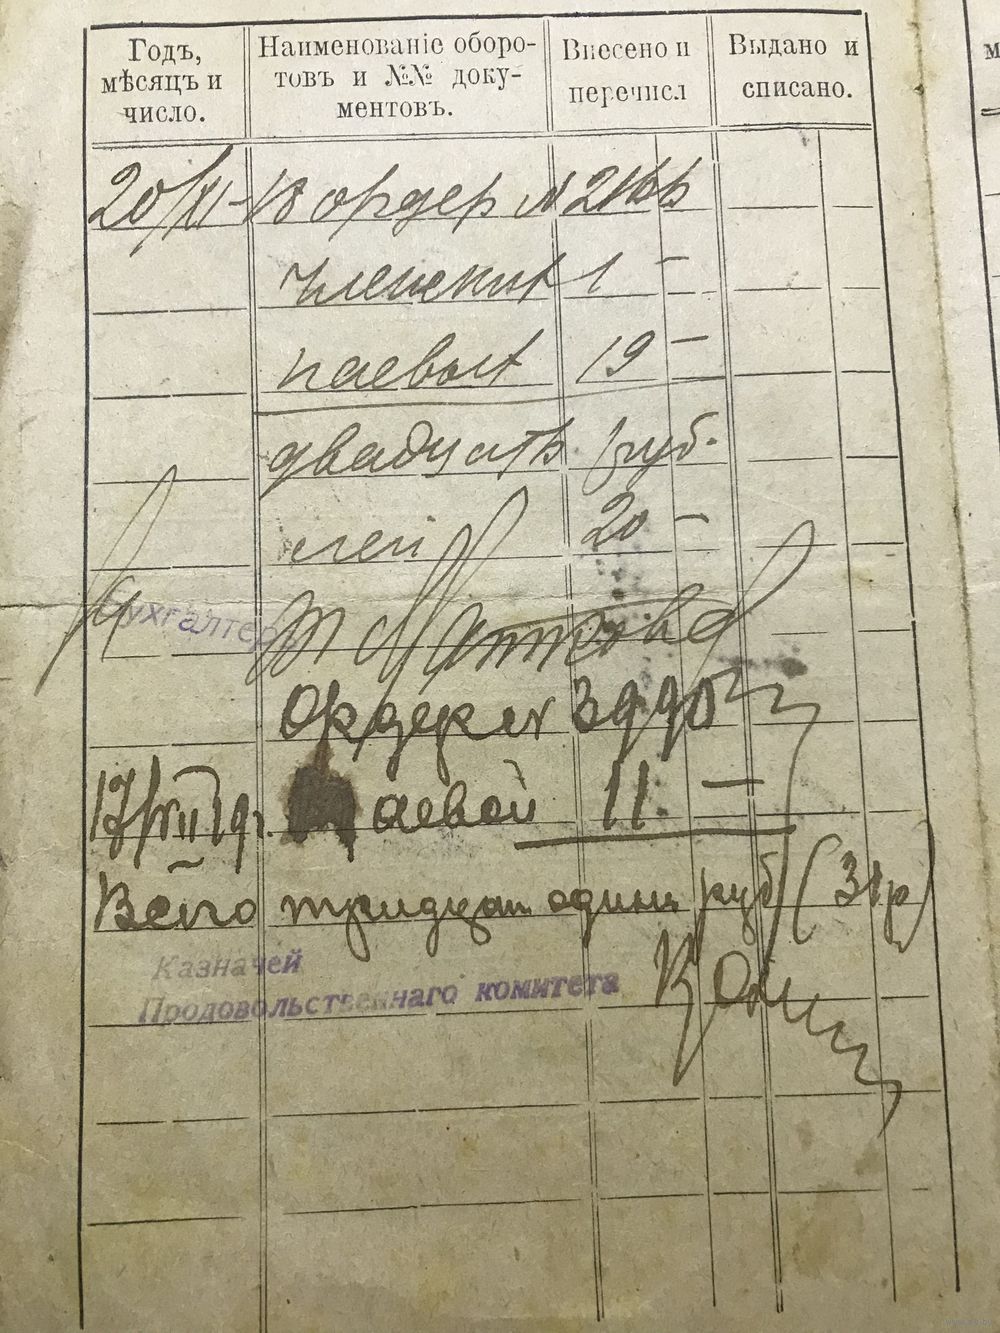 Годъ, мѣсяцъ и число.
Наименованіе оборо-
товъ и №№ доку-
ментовъ.
Внесено и перечисл
Выдано и списано.
20/XI-18 ордер №
членских 1 —
паевых 19 —
двадцать руб.
20 —
Бухгалтеръ
Ордер №
17/XII 19г. Паевой 11. —
Всего тридцать один руб (31р)
Казначей
Продовольственнаго комитета